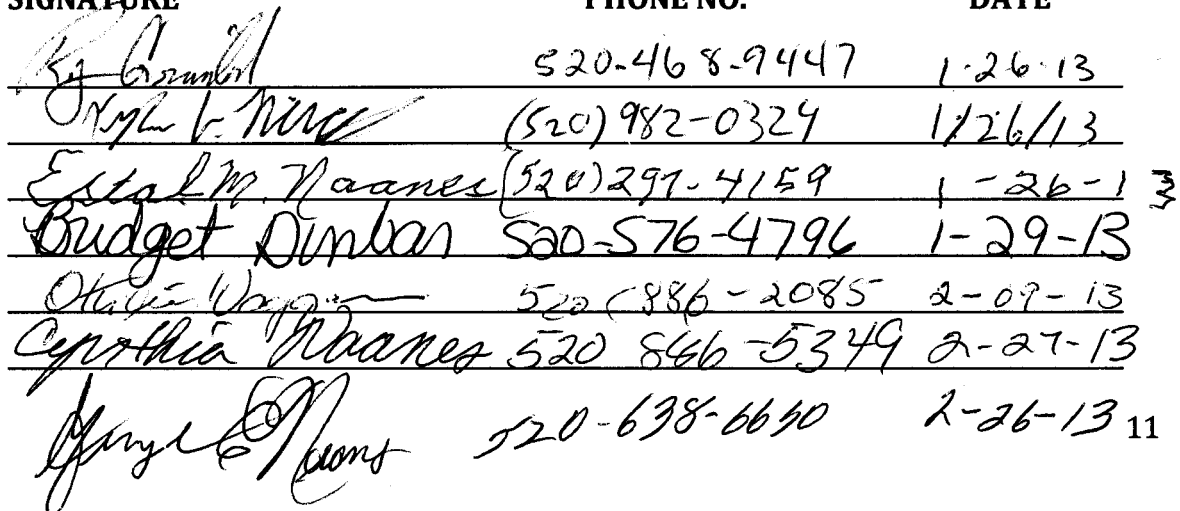 SIGNATURE PHONE NO. DATE
520-468-9447 1-26-13
(520) 982-0324 1/26/13
Estal M. Naanes (520) 297-4159 1-26-13
Bridget Dunbar 520-576-4796 1-29-13
520 886-2085 2-09-13
Cynthia Naanes 520 886-5349 2-27-13
520-638-6650 2-26-13 11